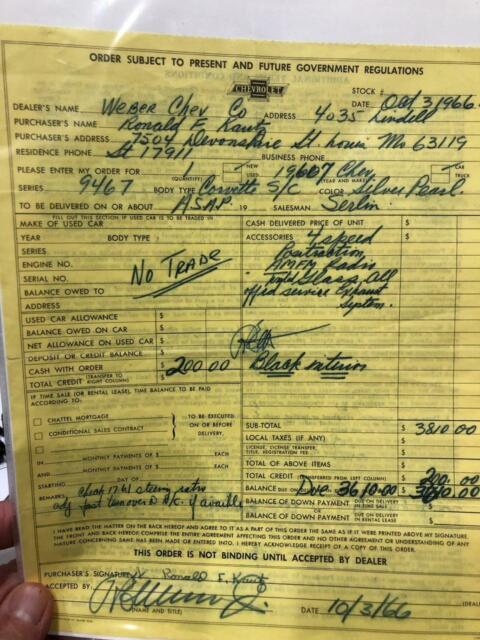 ORDER SUBJECT TO PRESENT AND FUTURE GOVERNMENT REGULATIONS
CHEVROLET
STOCK #
DEALER'S NAME Weber Chev Co ADDRESS 4035 Lindell DATE Oct 3 1966
PURCHASER'S NAME Ronald F Kautz
PURCHASER'S ADDRESS 7504 Devonshire St. Louis Mo 63119
RESIDENCE PHONE BUSINESS PHONE
PLEASE ENTER MY ORDER FOR 1 (QUANTITY) NEW USED 1967 Chev (YEAR AND MAKE) CAR TRUCK
SERIES 9467 BODY TYPE Corvette S/C COLOR Silver Pearl
TO BE DELIVERED ON OR ABOUT A.S.A.P. 19 SALESMAN Serlin
FILL OUT THIS SECTION IF USED CAR IS TO BE TRADED IN
MAKE OF USED CAR
YEAR BODY TYPE
SERIES
ENGINE NO.
SERIAL NO.
BALANCE OWED TO
ADDRESS
NO TRADE
USED CAR ALLOWANCE $
BALANCE OWED ON CAR $
NET ALLOWANCE ON USED CAR $
DEPOSIT OR CREDIT BALANCE $
CASH WITH ORDER $ 200.00
TOTAL CREDIT (TRANSFER TO RIGHT COLUMN) $
CASH DELIVERED PRICE OF UNIT $
ACCESSORIES 4 speed
Positraction,
AM FM Radio
Tinted Glass, All
offrd service Exhaust
System.
Black interior
IF TIME SALE (OR RENTAL LEASE), TIME BALANCE TO BE PAID ACCORDING TO:
CHATTEL MORTGAGE
CONDITIONAL SALES CONTRACT
TO BE EXECUTED ON OR BEFORE DELIVERY.
IN MONTHLY PAYMENTS OF $ EACH
AND MONTHLY PAYMENTS OF $ EACH
STARTING DAY OF
REMARKS check
SUB-TOTAL $ 3810.00
LOCAL TAXES (IF ANY) $
LICENSE, LICENSE TRANSFER, TITLE, REGISTRATION FEE $
TOTAL OF ABOVE ITEMS $
TOTAL CREDIT (TRANSFERRED FROM LEFT COLUMN) $ 200.00
BALANCE DUE Due 3610.00
BALANCE OF DOWN PAYMENT DUE ON DELIVERY IN TIME SALE $
BALANCE OF DOWN PAYMENT DUE ON DELIVERY IN RENTAL LEASE $
I HAVE READ THE MATTER ON THE BACK HEREOF AND AGREE TO IT AS A PART OF THIS ORDER THE SAME AS IF IT WERE PRINTED ABOVE MY SIGNATURE.
THE FRONT AND BACK HEREOF COMPRISE THE ENTIRE AGREEMENT AFFECTING THIS ORDER AND NO OTHER AGREEMENT OR UNDERSTANDING OF ANY
NATURE CONCERNING SAME HAS BEEN MADE OR ENTERED INTO. I HEREBY ACKNOWLEDGE RECEIPT OF A COPY OF THIS ORDER.
THIS ORDER IS NOT BINDING UNTIL ACCEPTED BY DEALER
PURCHASER'S SIGNATURE X Ronald F. Kautz
ACCEPTED BY:
(NAME AND TITLE) DATE 10/3/66